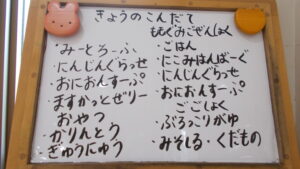 きょうのこんだて
・みーとろーふ
・にんじんぐらっせ
・おにおんすーぷ
・ますかっとゼリー
おやつ
・かりんとう
・ぎゅうにゅう
ももぐみごぜんしょく
・ごはん
・にこみはんばーぐ
・にんじんぐらっせ
・おにおんすーぷ
ごごしょく
・ぶろっこりがゆ
・みそしる・くだもの